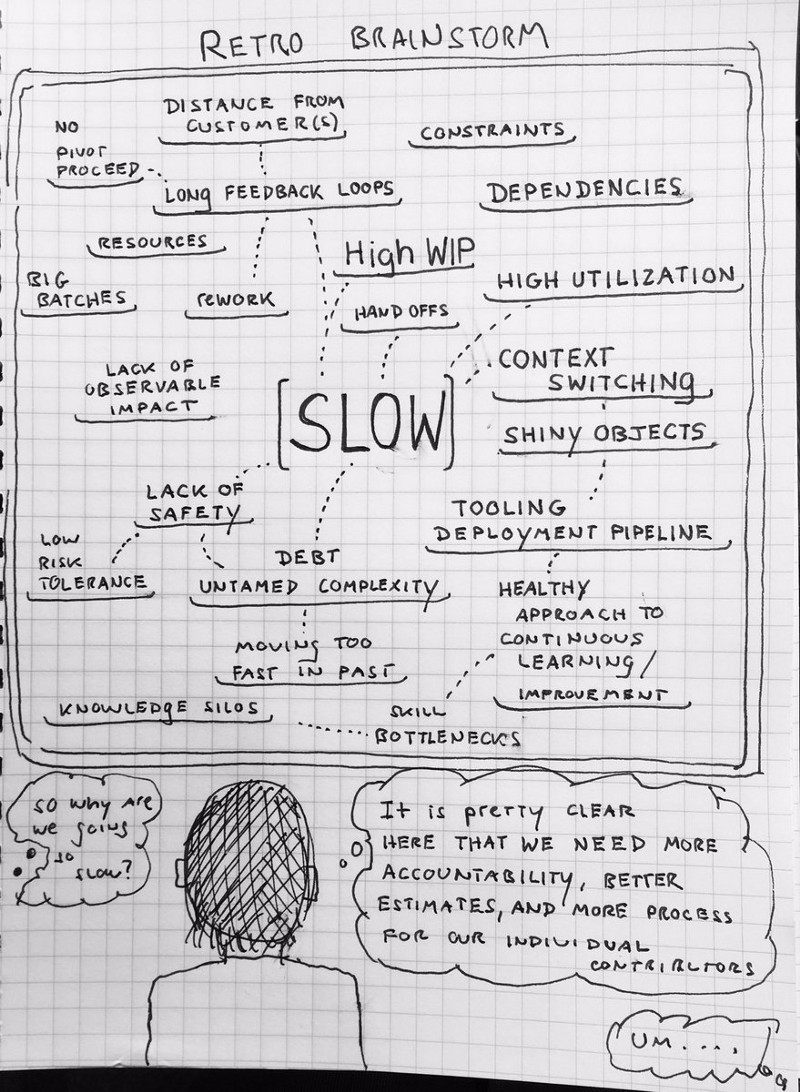 RETRO BRAINSTORM
DISTANCE FROM
CUSTOMER(S)
NO
PIVOT
PROCEED
CONSTRAINTS
LONG FEEDBACK LOOPS
DEPENDENCIES
RESOURCES
High WIP
BIG
BATCHES
REWORK
HAND OFFS
HIGH UTILIZATION
LACK OF
OBSERVABLE
IMPACT
CONTEXT
SWITCHING
[SLOW]
SHINY OBJECTS
LACK OF
SAFETY
TOOLING
DEPLOYMENT PIPELINE
LOW
RISK
TOLERANCE
DEBT
UNTAMED COMPLEXITY
HEALTHY
APPROACH TO
CONTINUOUS
LEARNING/
IMPROVEMENT
MOVING TOO
FAST IN PAST
KNOWLEDGE SILOS
SKILL
BOTTLENECKS
SO WHY ARE
WE GOING
SO
SLOW?
It is pretty CLEAR
HERE THAT WE NEED MORE
ACCOUNTABILITY, BETTER
ESTIMATES, AND MORE PROCESS
FOR OUR INDIVIDUAL
CONTRIBUTORS
UM....,